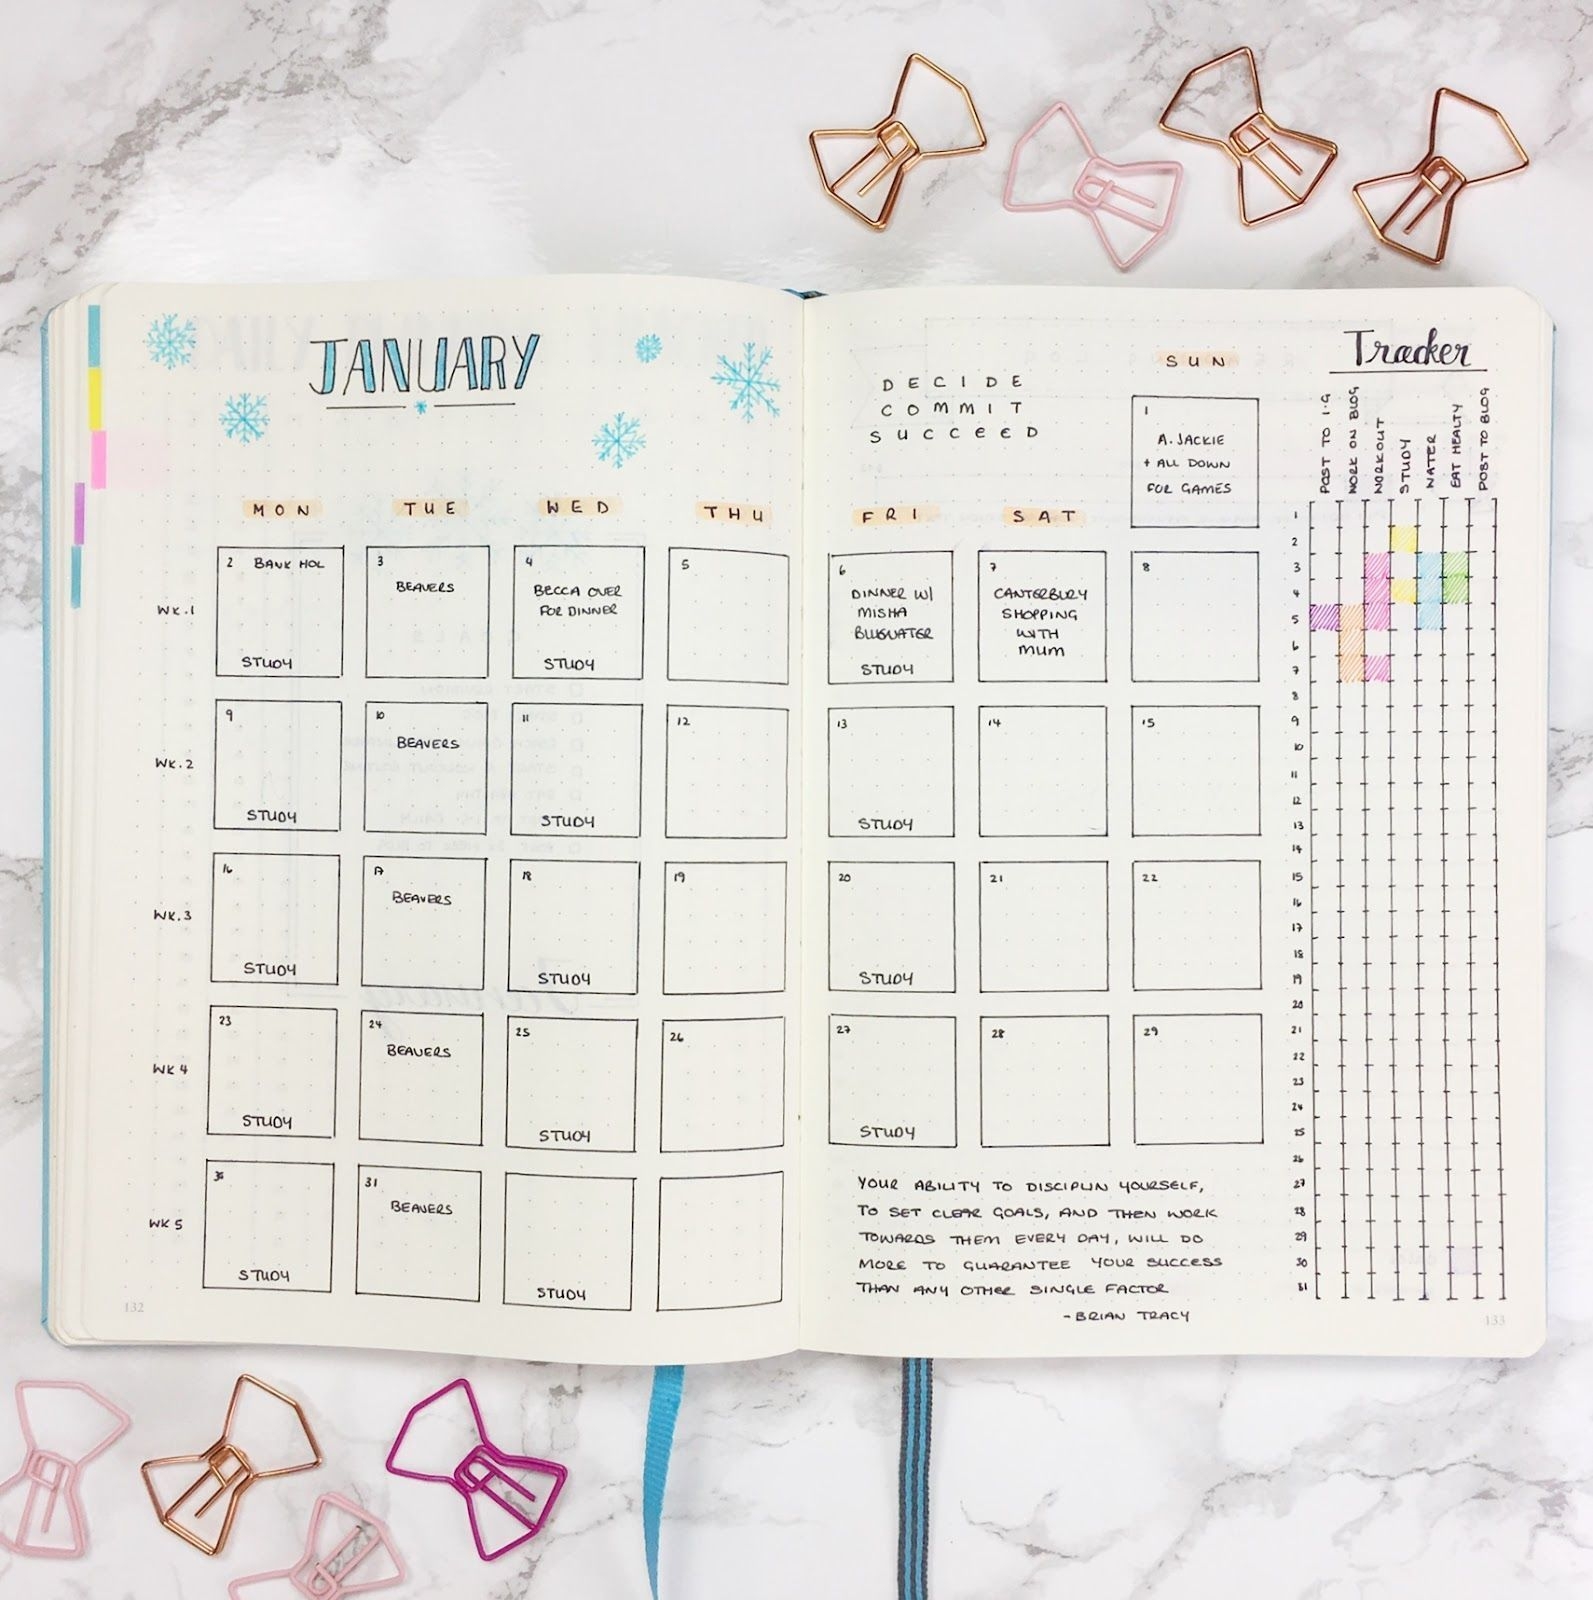 JANUARY
DECIDE
COMMIT
SUCCEED
SUN
1
A. JACKIE
+ ALL DOWN
FOR GAMES
MON TUE WED THU FRI SAT
WK.1
2 BANK HOL
STUDY
3
BEAVERS
4
BECCA OVER
FOR DINNER
STUDY
5
6
DINNER W/
MISHA
BLUEWATER
STUDY
7
CANTERBURY
SHOPPING
WITH
MUM
8
WK.2
9
STUDY
10
BEAVERS
11
STUDY
12
13
STUDY
14
15
WK.3
16
STUDY
17
BEAVERS
18
STUDY
19
20
STUDY
21
22
WK 4
23
STUDY
24
BEAVERS
25
STUDY
26
27
STUDY
28
29
WK 5
30
STUDY
31
BEAVERS
STUDY
YOUR ABILITY TO DISCIPLIN YOURSELF,
TO SET CLEAR GOALS, AND THEN WORK
TOWARDS THEM EVERY DAY, WILL DO
MORE TO GUARANTEE YOUR SUCCESS
THAN ANY OTHER SINGLE FACTOR
- BRIAN TRACY
Tracker
POST TO I.G
WORK ON BLOG
WORKOUT
STUDY
WATER
EAT HEALTY
POST TO BLOG
1
2
3
4
5
6
7
8
9
10
11
12
13
14
15
16
17
18
19
20
21
22
23
24
25
26
27
28
29
30
31
132
133